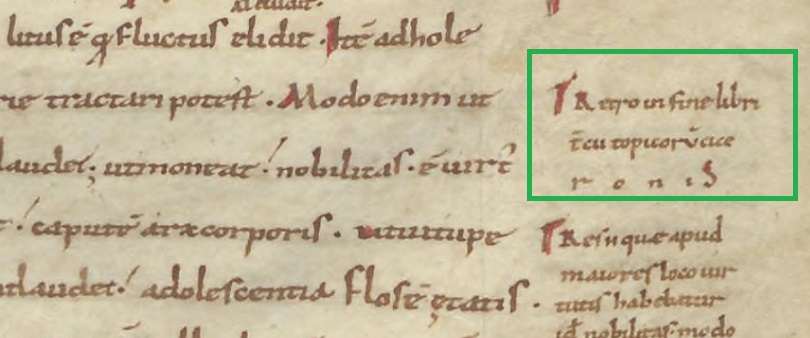 litus ē q̨ fluctus elidit. Itē ad hole
tractari potest. Modo enim ut
laudet; ut moneat nobilitas. ē
caput ē arx corporis. ut vitupe
laudet adolescentia flos ē ętatis.
Retro in fine libri
topicorū cice
r o n i s
Res quae apud
maiores loco vir
tutis habebatur
id nobilitas modo